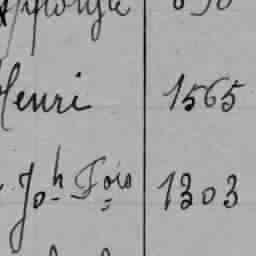 Henri 1565
Joh Fois 1303